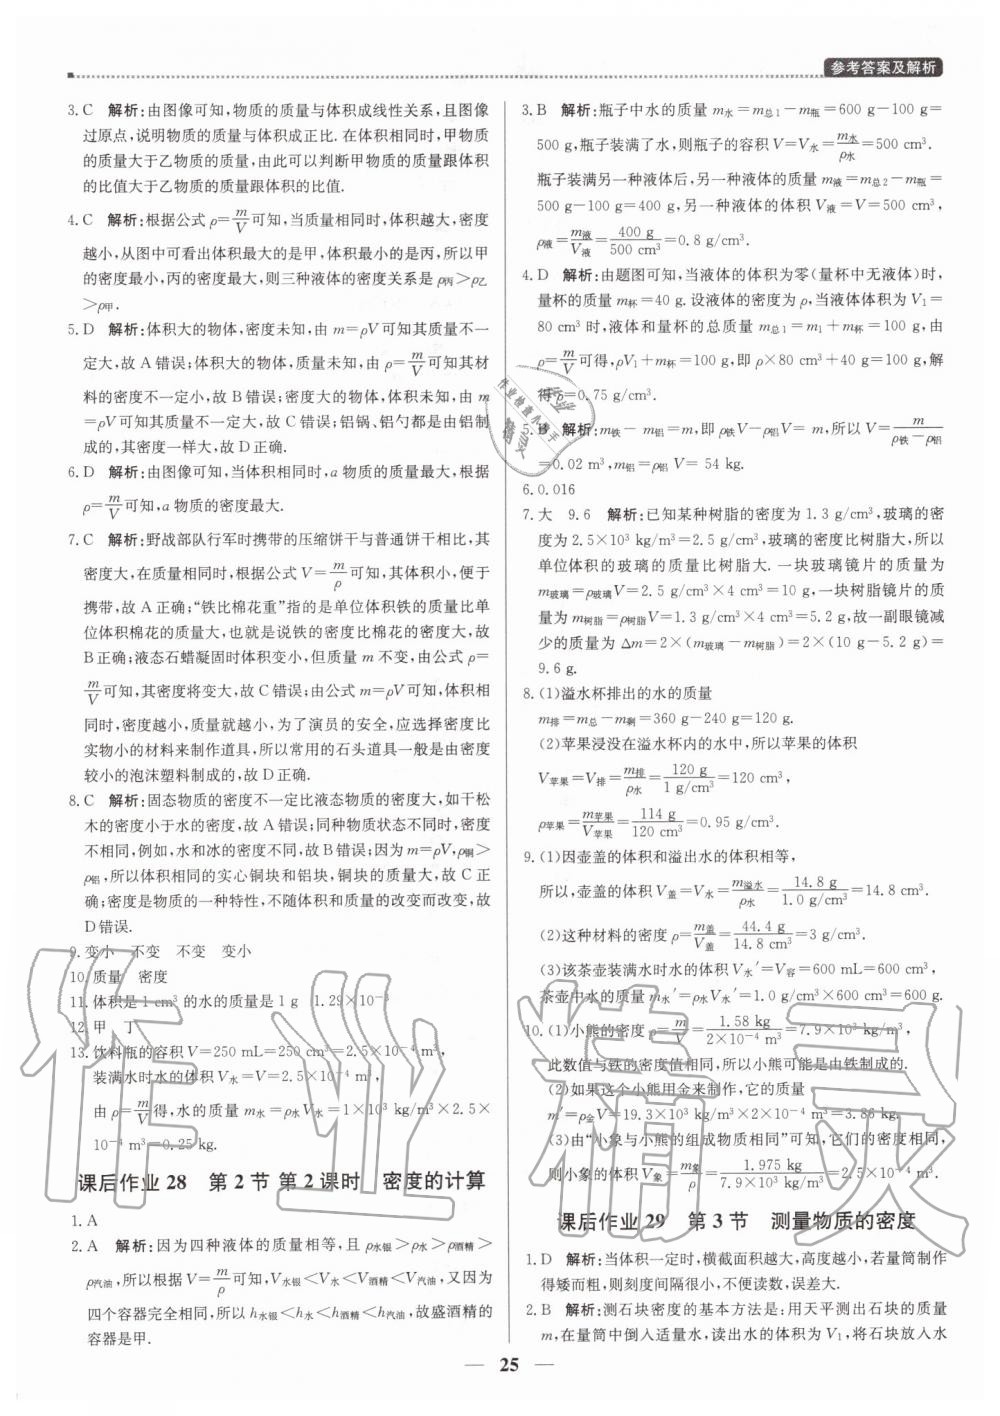 参考答案及解析
3. C　解析:由图像可知,物质的质量与体积成线性关系,且图像
过原点,说明物质的质量与体积成正比. 在体积相同时,甲物质
的质量大于乙物质的质量,由此可以判断甲物质的质量跟体积
的比值大于乙物质的质量跟体积的比值.
4. C　解析:根据公式 ρ=m/V可知,当质量相同时,体积越大,密度
越小,从图中可看出体积最大的是甲,体积最小的是丙,所以甲
的密度最小,丙的密度最大,则三种液体的密度关系是 ρ丙>ρ乙
>ρ甲.
5. D　解析:体积大的物体,密度未知,由 m=ρV可知其质量不一
定大,故 A 错误;体积大的物体,质量未知,由 ρ=m/V可知其材
料的密度不一定小,故 B 错误;密度大的物体,体积未知,由 m
=ρV可知其质量不一定大,故 C 错误;铝锅、铝勺都是由铝制
成的,其密度一样大,故 D 正确.
6. D　解析:由图像可知,当体积相同时,a 物质的质量最大,根据
ρ=m/V可知,a 物质的密度最大.
7. C　解析:野战部队行军时携带的压缩饼干与普通饼干相比,其
密度大,在质量相同时,根据公式 V=m/ρ可知,其体积小,便于
携带,故 A 正确;“铁比棉花重”指的是单位体积铁的质量比单
位体积棉花的质量大,也就是说铁的密度比棉花的密度大,故
B 正确;液态石蜡凝固时体积变小,但质量 m 不变,由公式 ρ=
m/V可知,其密度将变大,故 C 错误;由公式 m=ρV可知,体积相
同时,密度越小,质量就越小,为了演员的安全,应选择密度比
实物小的材料来制作道具,所以常用的石头道具一般是由密度
较小的泡沫塑料制成的,故 D 正确.
8. C　解析:固态物质的密度不一定比液态物质的密度大,如干松
木的密度小于水的密度,故 A 错误;同种物质状态不同时,密度
不相同,例如,水和冰的密度不同,故 B 错误;因为 m=ρV,ρ铜>
ρ铝,所以体积相同的实心铜块和铝块,铜块的质量大,故 C 正
确;密度是物质的一种特性,不随体积和质量的改变而改变,故
D 错误.
9. 变小　不变　不变　变小
10. 质量　密度
11. 体积是 1 cm³ 的水的质量是 1 g　1.29×10⁻³
12. 甲　丁
13. 饮料瓶的容积 V=250 mL=250 cm³=2.5×10⁻⁴ m³,
装满水时水的体积 V水=V=2.5×10⁻⁴ m³,
由 ρ=m/V得,水的质量 m水=ρ水V水=1×10³ kg/m³×2.5×
10⁻⁴ m³=0.25 kg.
课后作业 28　第 2 节 第 2 课时　密度的计算
1. A
2. A　解析:因为四种液体的质量相等,且 ρ水银>ρ水>ρ酒精>
ρ汽油,所以根据 V=m/ρ可知,V水银<V水<V酒精<V汽油,又因为
四个容器完全相同,所以 h水银<h水<h酒精<h汽油,故盛酒精的
容器是甲.
3. B　解析:瓶子中水的质量 m水=m总1-m瓶=600 g-100 g=
500 g,瓶子装满了水,则瓶子的容积 V=V水=m水/ρ水=500 cm³.
瓶子装满另一种液体后,另一种液体的质量 m液=m总2-m瓶=
500 g-100 g=400 g,另一种液体的体积 V液=V=500 cm³,
ρ液=m液/V液=400 g/500 cm³=0.8 g/cm³.
4. D　解析:由题图可知,当液体的体积为零(量杯中无液体)时,
量杯的质量 m杯=40 g. 设液体的密度为 ρ,当液体体积为 V₁=
80 cm³ 时,液体和量杯的总质量 m总1=m₁+m杯=100 g,由
ρ=m/V可得,ρV₁+m杯=100 g,即 ρ×80 cm³+40 g=100 g,解
得 ρ=0.75 g/cm³.
5. B　解析:m铁- m铝=m,即 ρ铁V-ρ铝V= m,所以 V=m/(ρ铁-ρ铝)
=0.02 m³,m铝=ρ铝 V= 54 kg.
6. 0.016
7. 大　9.6　解析:已知某种树脂的密度为 1.3 g/cm³,玻璃的密
度为 2.5×10³ kg/m³=2.5 g/cm³,玻璃的密度比树脂大,所以
单位体积的玻璃的质量比树脂大. 一块玻璃镜片的质量为
m玻璃=ρ玻璃V=2.5 g/cm³×4 cm³=10 g,一块树脂镜片的质
量为 m树脂=ρ树脂V=1.3 g/cm³×4 cm³=5.2 g,故一副眼镜减
少的质量为 Δm=2×(m玻璃-m树脂)=2×(10 g-5.2 g)=
9.6 g.
8. (1)溢水杯排出的水的质量
m排=m总-m剩=360 g-240 g=120 g.
(2)苹果浸没在溢水杯内的水中,所以苹果的体积
V苹果=V排=m排/ρ水=120 g/1 g/cm³=120 cm³,
ρ苹果=m苹果/V苹果=114 g/120 cm³=0.95 g/cm³.
9. (1)因壶盖的体积和溢出水的体积相等,
所以,壶盖的体积 V盖=V水=m溢水/ρ水=14.8 g/1.0 g/cm³=14.8 cm³.
(2)这种材料的密度 ρ=m盖/V盖=44.4 g/14.8 cm³=3 g/cm³.
(3)该茶壶装满水时水的体积 V水′=V容=600 mL=600 cm³,
茶壶中水的质量 m水′=ρ水V水′=1.0 g/cm³×600 cm³=600 g.
10. (1)小熊的密度 ρ=m/V=1.58 kg/2×10⁻⁴ m³=7.9×10³ kg/m³,
此数值与铁的密度值相同,所以小熊可能是由铁制成的.
(2)如果这个小熊用金来制作,它的质量
m′=ρ金V=19.3×10³ kg/m³×2×10⁻⁴ m³=3.86 kg.
(3)由“小象与小熊的组成物质相同”可知,它们的密度相同,
则小象的体积 V象=m象/ρ=1.975 kg/7.9×10³ kg/m³=2.5×10⁻⁴ m³.
课后作业 29　第 3 节　测量物质的密度
1. D　解析:当体积一定时,横截面积越大,高度越小,若量筒制作
得矮而粗,则刻度间隔很小,不便读数,误差大.
2. B　解析:测石块密度的基本方法是:用天平测出石块的质量
m,在量筒中倒入适量水,读出水的体积为 V₁,将石块放入水
25
作业精灵
作业检查小助手